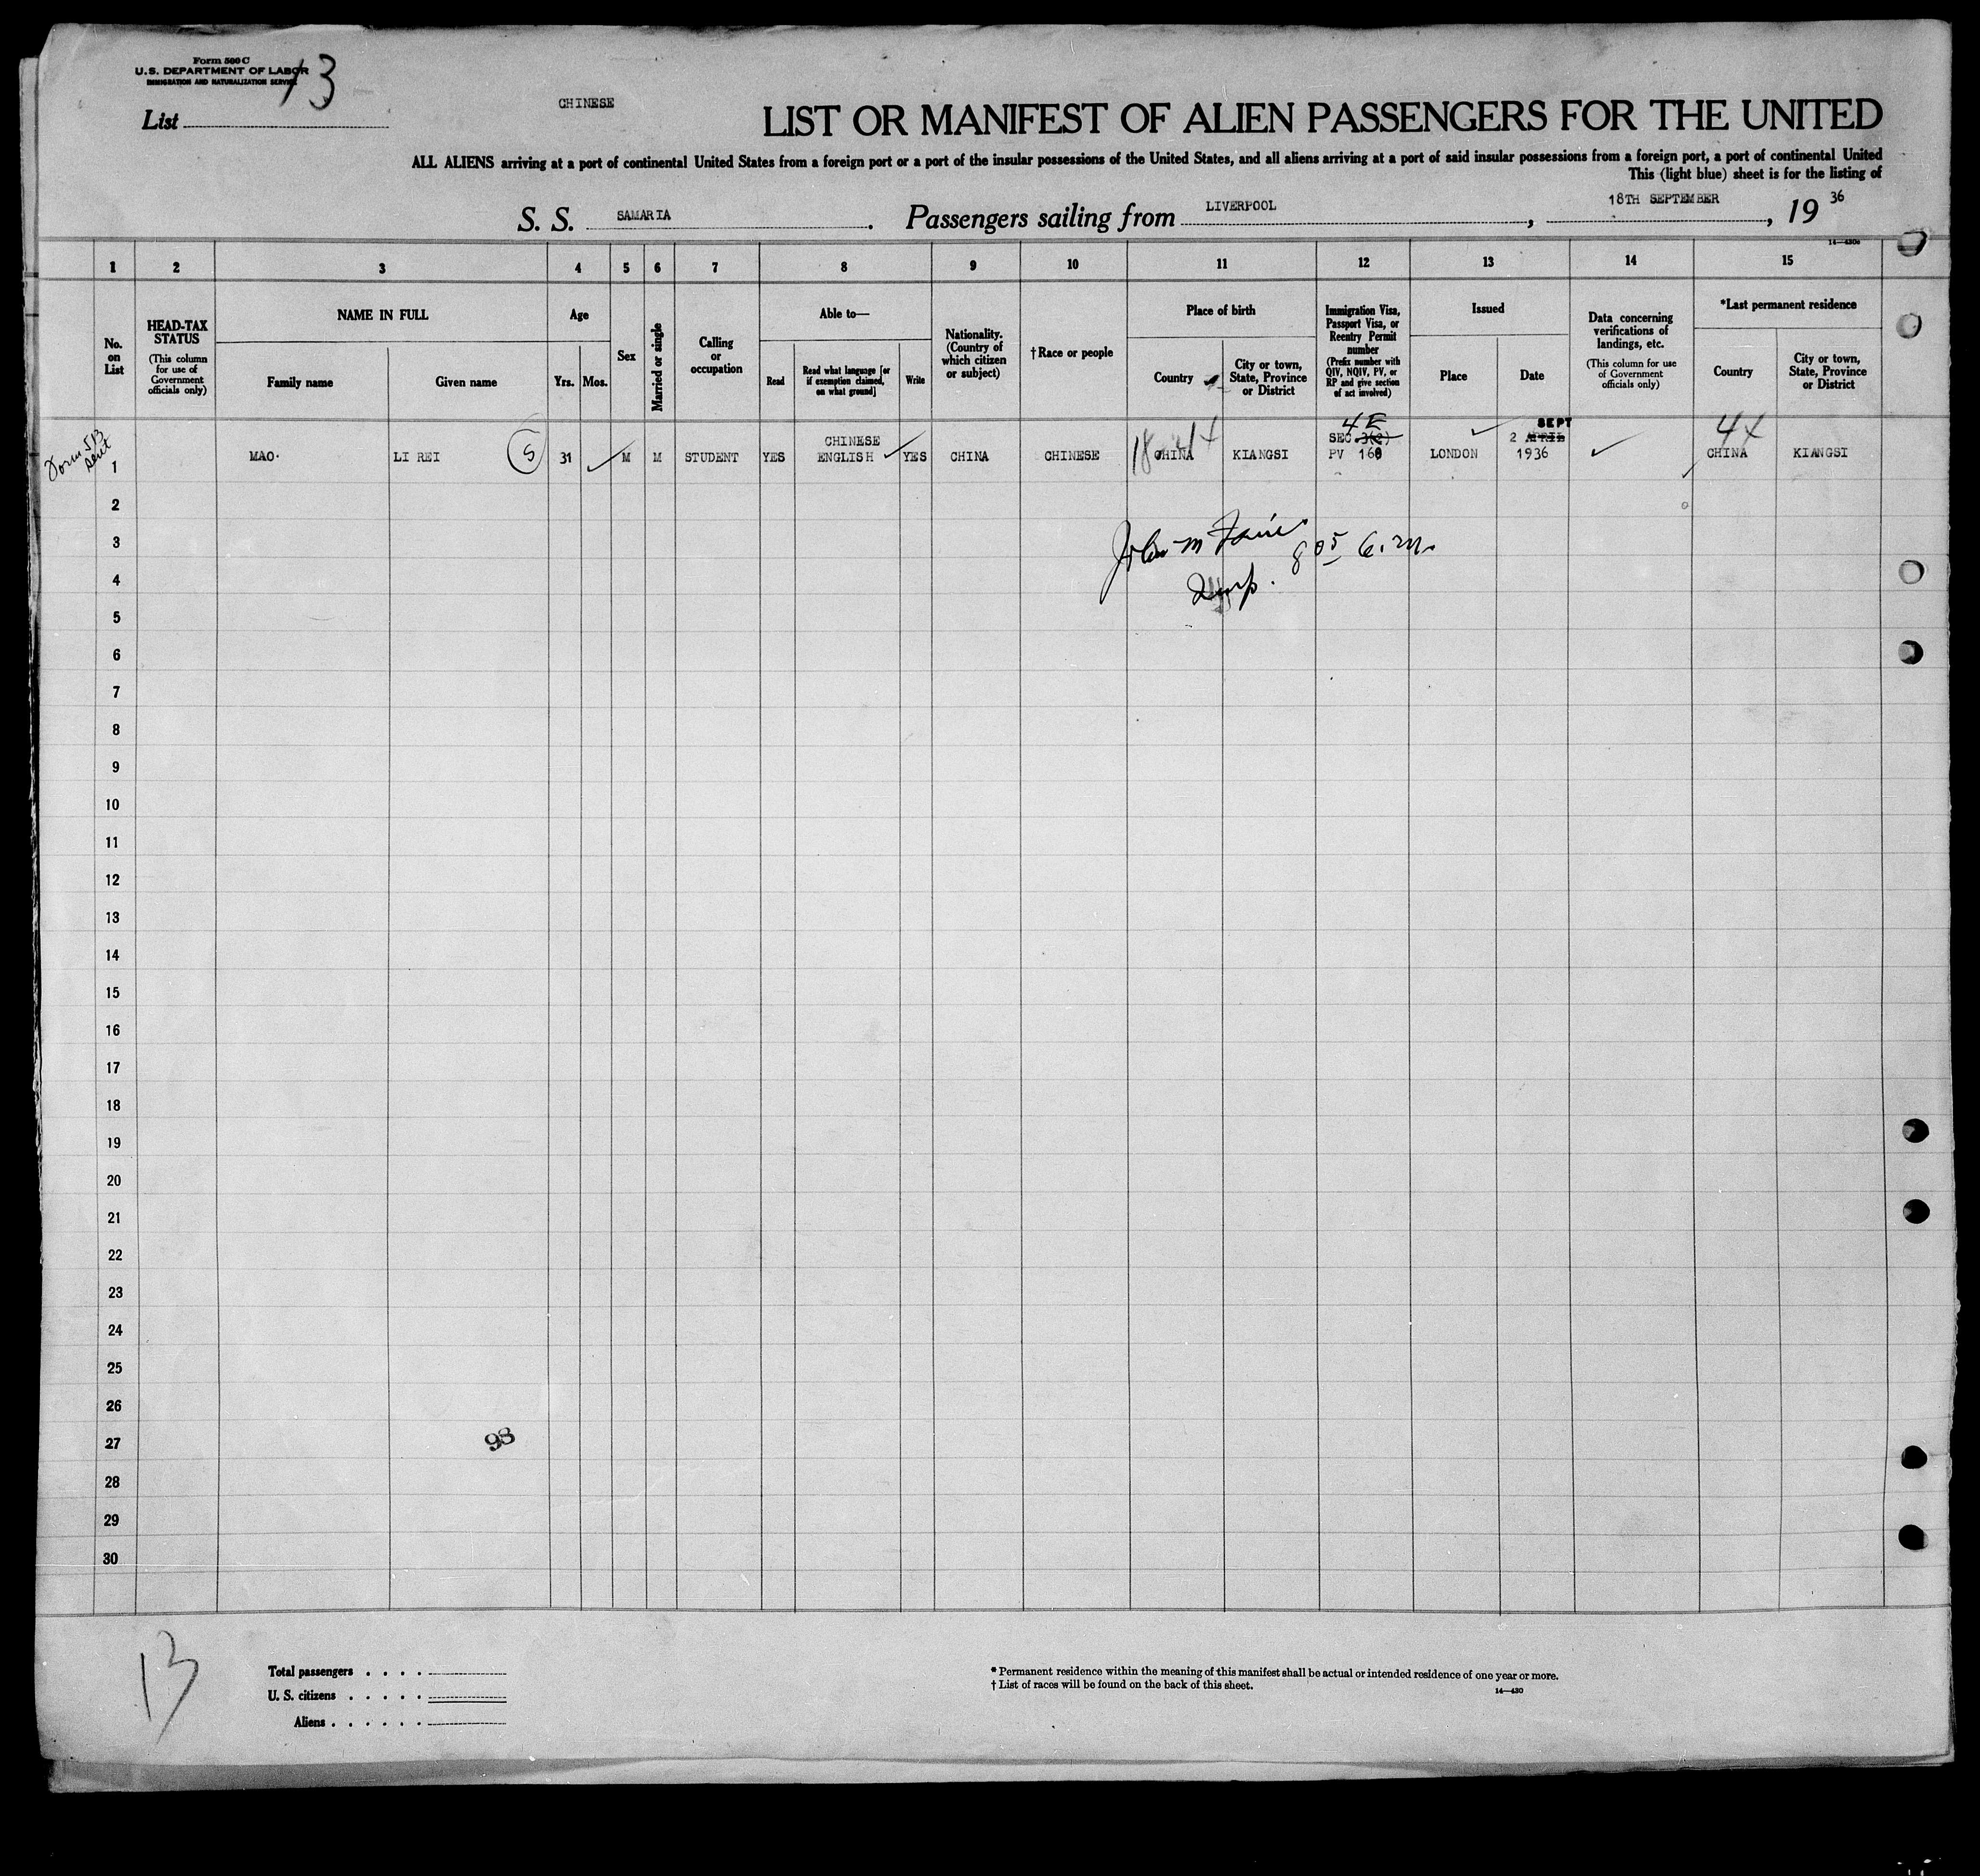 Form 500 C
U.S. DEPARTMENT OF LABOR
IMMIGRATION AND NATURALIZATION SERVICE
13
List
CHINESE
LIST OR MANIFEST OF ALIEN PASSENGERS FOR THE UNITED
ALL ALIENS arriving at a port of continental United States from a foreign port or a port of the insular possessions of the United States, and all aliens arriving at a port of said insular possessions from a foreign port, a port of continental United
This (light blue) sheet is for the listing of
S. S. SAMARIA. Passengers sailing from LIVERPOOL, 18TH SEPTEMBER, 19 36
14—430c
1 2 3 4 5 6 7 8 9 10 11 12 13 14 15
No. on List
HEAD-TAX STATUS
(This column for use of Government officials only)
NAME IN FULL
Family name
Given name
Age
Yrs. Mos.
Sex
Married or single
Calling or occupation
Able to—
Read
Read what language [or if exemption claimed, on what ground]
Write
Nationality. (Country of which citizen or subject)
†Race or people
Place of birth
Country
City or town, State, Province or District
Immigration Visa, Passport Visa, or Reentry Permit number
(Prefix number with QIV, NQIV, PV, or RP and give section of act involved)
Issued
Place
Date
Data concerning verifications of landings, etc.
(This column for use of Government officials only)
*Last permanent residence
Country
City or town, State, Province or District
Form 513 sent
4E SEPT 44
CHINESE SEC 3(2) 2 APRIL
1 MAO. LI REI S 31 M M STUDENT YES ENGLISH YES CHINA CHINESE CHINA KIANGSI PV 160 LONDON 1936 CHINA KIANGSI
2
3
John M
4
5
6
7
8
9
10
11
12
13
14
15
16
17
18
19
20
21
22
23
24
25
26
27
98
28
29
30
13
Total passengers . . . .
U. S. citizens . . . . .
Aliens . . . . . .
* Permanent residence within the meaning of this manifest shall be actual or intended residence of one year or more.
† List of races will be found on the back of this sheet.
14—430